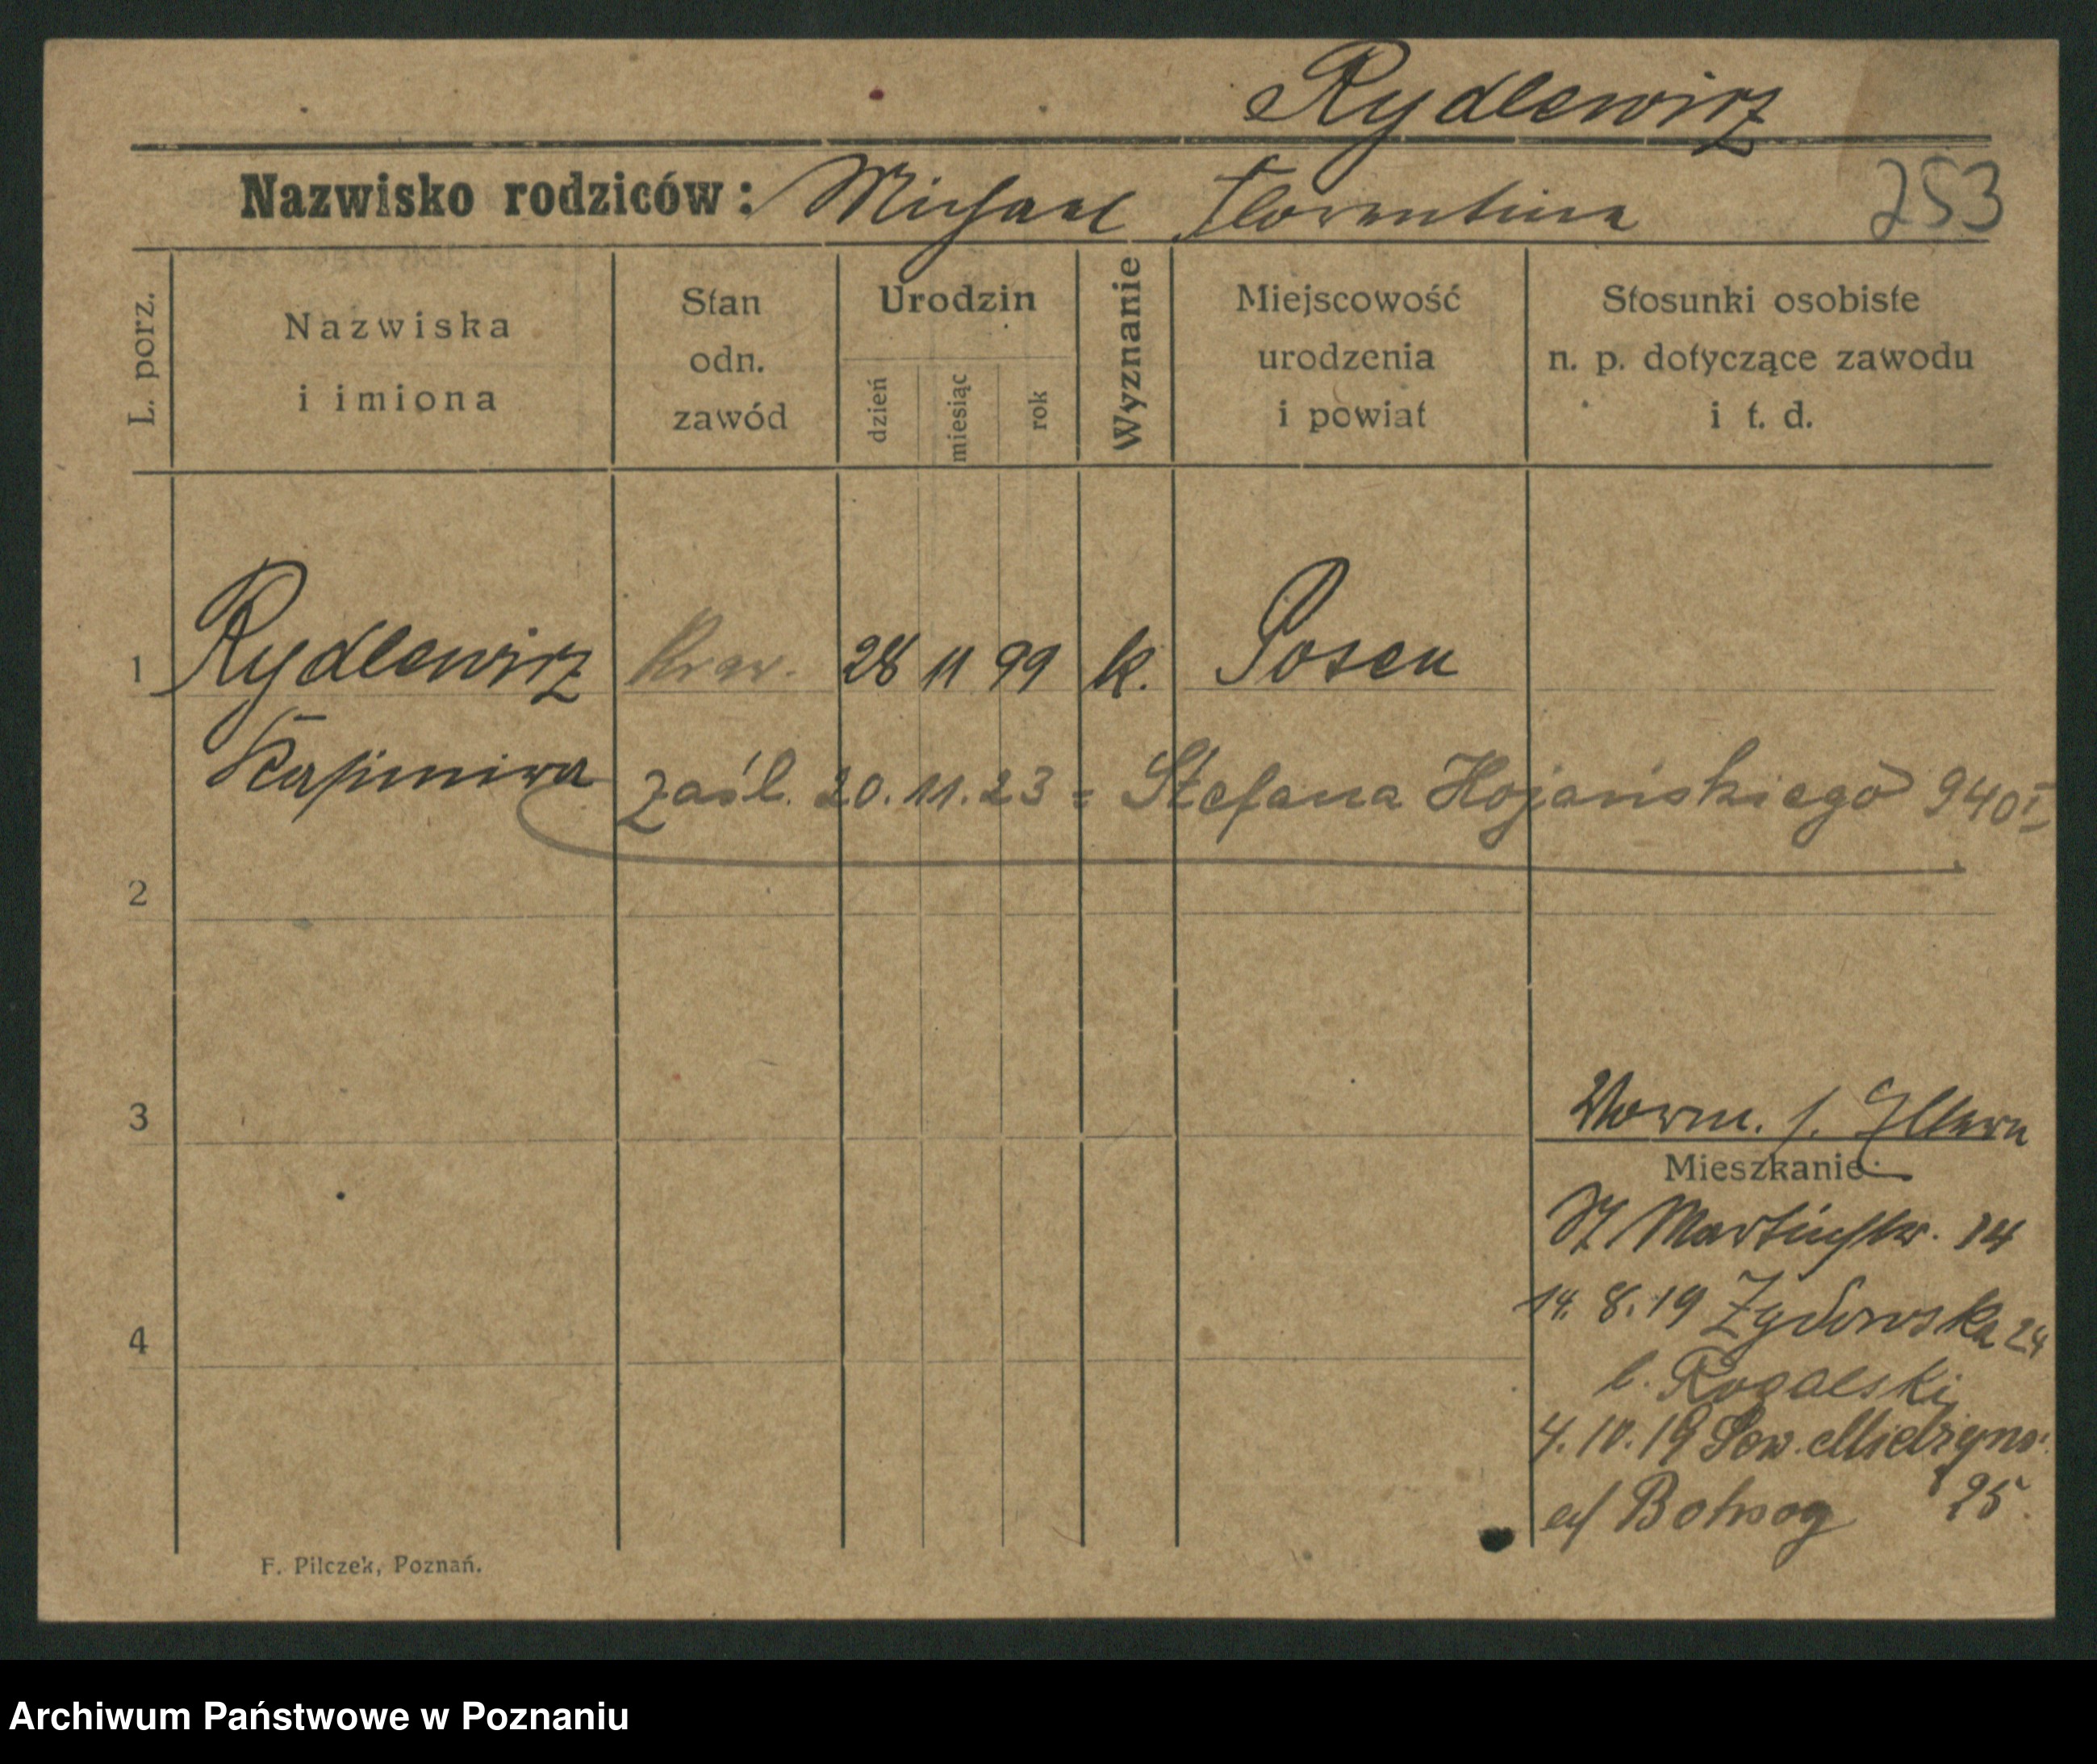 Rydlewicz
Nazwisko rodziców: Michael Florentina
253
L. porz.
Nazwiska
i imiona
Stan
odn.
zawód
Urodzin
dzień
miesiąc
rok
Wyznanie
Miejscowość
urodzenia
i powiat
Stosunki osobiste
n. p. dotyczące zawodu
i t. d.
1 Rydlewicz Kraw. 28 11 99 k. Posen
Kasimira zaśl. 20.11.23 = Stefana Hojańskiego 940 I
2
3
Vorm. f. Eltern
Mieszkanie:
St Martinstr. 14
14. 8. 19 Żydowska 24
4
b. Rogalski
4. 10. 19
25.
F. Pilczek, Poznań.
Archiwum Państwowe w Poznaniu